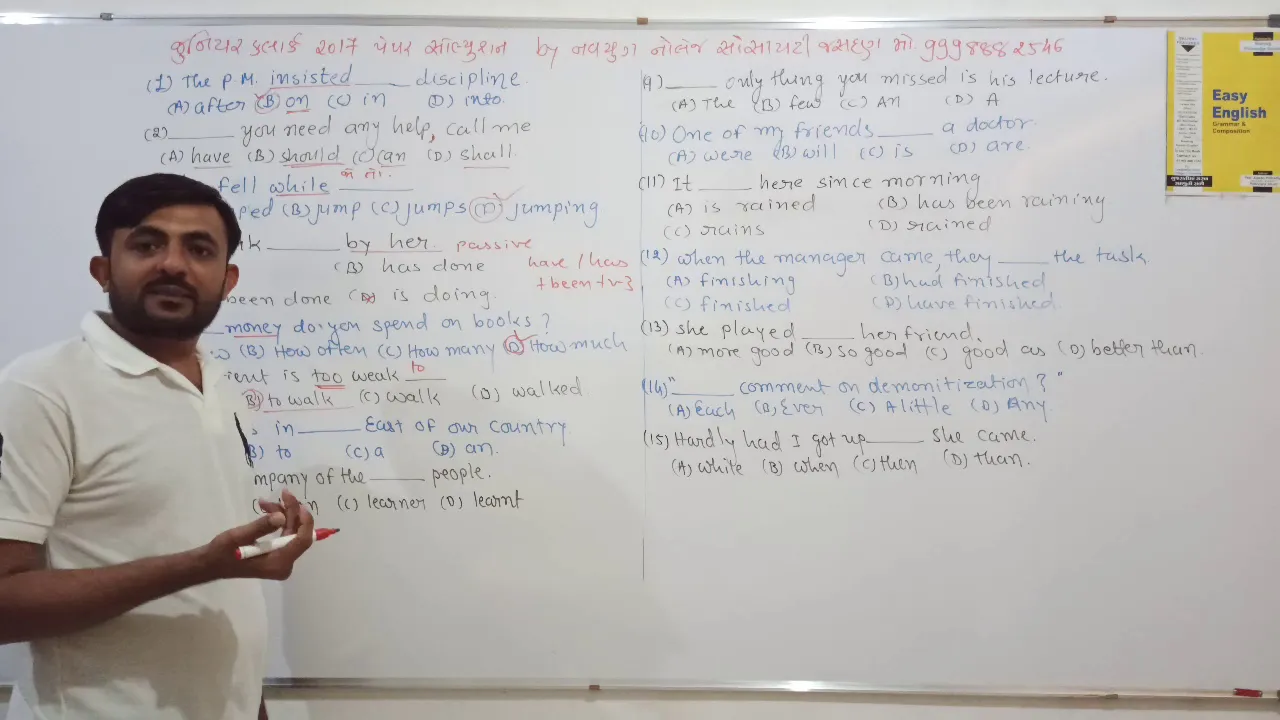 જુનિયર ક્લાર્ક 2017 પેપર સોલ્યુશન by નવયુગ નોલેજ સોસાયટી જસદણ મો. 999888 2546
(1) The P.M. insisted ____ discipline.
(A) after (B) on (C) in (D) into.
(2) ____ you need any help, call me
(A) have (B) should (C) can (D) shall
જો તો.
fell while ____
ped (B) jump (C) jumps (D) jumping
____ by her. passive
(B) has done have / has
+ been + v-3
been done (D) is doing.
____ money do you spend on books?
(B) How often (C) How many (D) How much
ient is too weak to ____
(B) to walk (C) walk (D) walked
in ____ East of our country.
(B) to (C) a (D) an.
mpany of the ____ people.
(C) learner (D) learnt
____ thing you missed is his lecture.
(A) The (B) How (C) An (D) A
(10) One of my friends ____ a doctor.
(A) were (B) will (C) is (D) are.
It ____ here since morning
(A) is rained (B) has been raining
(C) rains (D) rained
(12) when the manager came, they ____ the task.
(A) finishing (B) had finished
(C) finished (D) have finished.
(13) she played ____ her friend.
(A) more good (B) so good (C) good as (D) better than.
(14) "____ comment on demonitization?"
(A) Each (B) Ever (C) A little (D) Any.
(15) Hardly had I got up ____ she came.
(A) white (B) when (C) then (D) than.
Easy
English
Grammar &
Composition